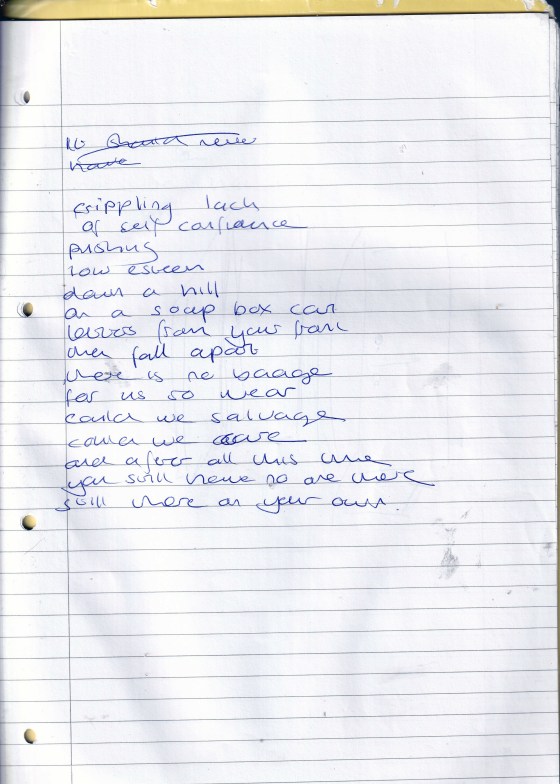 crippling lack
of self confiance
pushing
low esteem
down a hill
on a soap box car
letters from your
they fall apart
there is no baage
for us to wear
could we salvage
could we
and after all this time
you still have no one there
still there on your own.